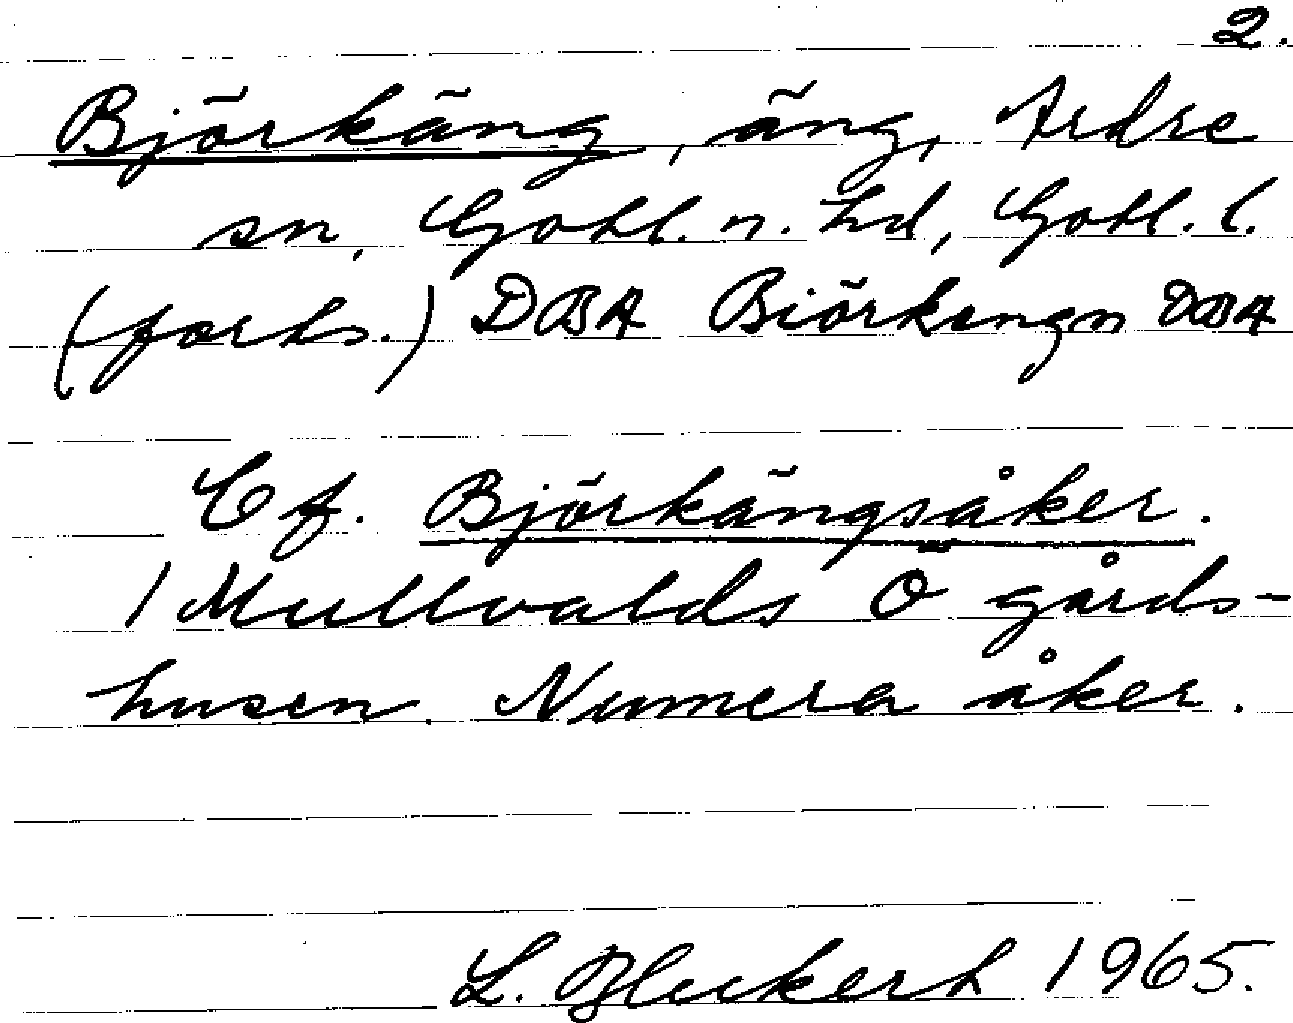 2.
Björkäng, äng, Ardre
sn, Gotl. n. hd, Gotl. l.
(forts.) DBA Biörkengn DBA
Cf. Björkängsåker.
1 Mullvalds Ö gårds-
husen. Numera åker.
L. Bleckert 1965.